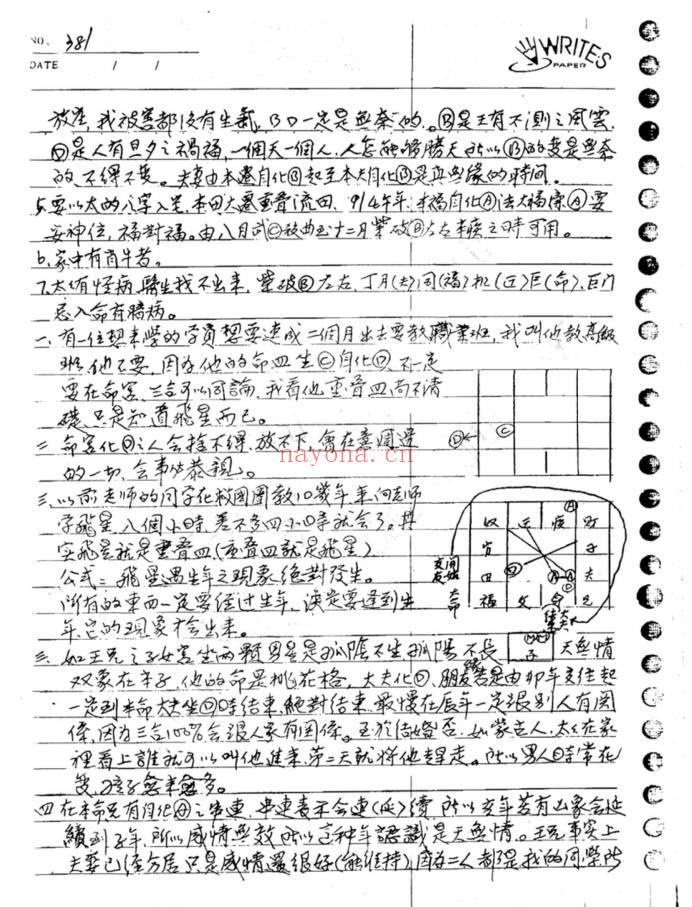 NO. 381
DATE / /
WRITE'S
PAPER
放產, 我被害都沒有生氣, BD一定是無奈的。Ⓑ是天有不測之風雲
Ⓓ是人有旦夕之禍福, 一個天一個人, 人怎能勝天 所以Ⓑ的變是無奈
的, 不得不變。夫妻由本還自化Ⓑ起至本大自化Ⓓ是真無緣的時間。
5. 要以太的八字入宅, 本田大還重疊流田, 91年年, 福自化Ⓐ法大福像Ⓐ要
安神位, 福對福。由八月武Ⓒ曲至十二月 破Ⓑ左右 之時可用。
6. 家中有肖牛者。
7. 太太有怪病, 醫生找不出來, 破Ⓑ左右, 丁月(夫)同(福)机(遷)巨(命), 巨門
忌入命有暗病。
一、有一位想來學的学員想要速成二個月出去要教職業班, 我叫他教高級
班 他不要, 因為他的命四生Ⓒ自化Ⓓ, 不一定
要在命宮, 三合可以同論, 我看他重疊四尚不清
礎, 只是知道飛星而已。
Ⓓ Ⓒ
二、命宮化Ⓓ之人會捨不得, 放不下, 會在意周邊
的一切, 會事必恭親。
nayona.cn
三、以前老師的同学在救國團教10幾年, 来向老師
学飛星, 八個小時, 差不多四小時就会了。其
实飛星就是重疊四, (重疊四就是飛星)
公式: 飛星遇生年之現象絕對發生。
所有的東西一定要經过生年, 決定要遇到生
年, 它的現象才会出来。
Ⓐ
奴 迁 疾 財
官 子
田 Ⓓ Ⓐ 夫
福 父 命 兄
交友
子
三、如王兄之子女宮坐兩顆男星是孤陰不生孤陽不長
天無情
双象在本子, 他的命是桃花格, 太夫化Ⓓ, 朋友宮是由那年交往起
一定到本命大坐Ⓓ時結束, 絕對結束, 最慢在辰年一定跟別人有関
係, 因为三合100%会跟人家有関係。至於結婚否, 如蒙古人, 太太在家
裡看上誰就可以叫他進來, 第二天就将他趕走。所以男人時常在
, 孩子愈来愈多。
四、在本命兄有自化Ⓐ之串連, 串連表示会連(延)續 所以亥年若有此象会延
續到子年, 所以感情無效 所以這种年認識是天無情。王兄事实上
夫妻已經分居, 只是感情還很好(能維持), 因为二人都是我的同学所